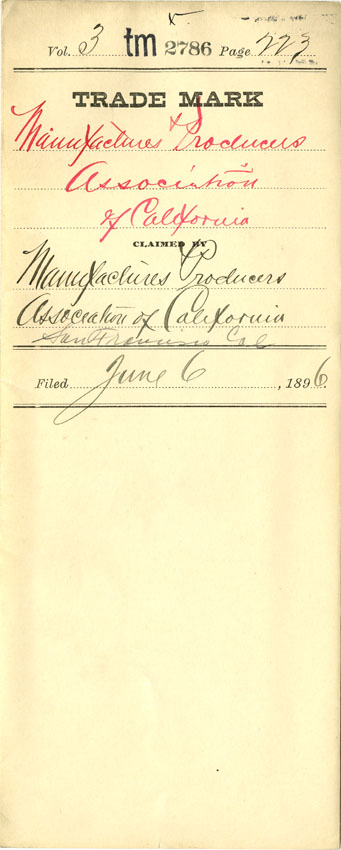 Vol. 3 tm 2786 Page 223
TRADE MARK
Manufactures & Producers
Association
of California
CLAIMED BY
Manufactures & Producers
Association of California
San Francisco Cal
Filed June 6, 1896.